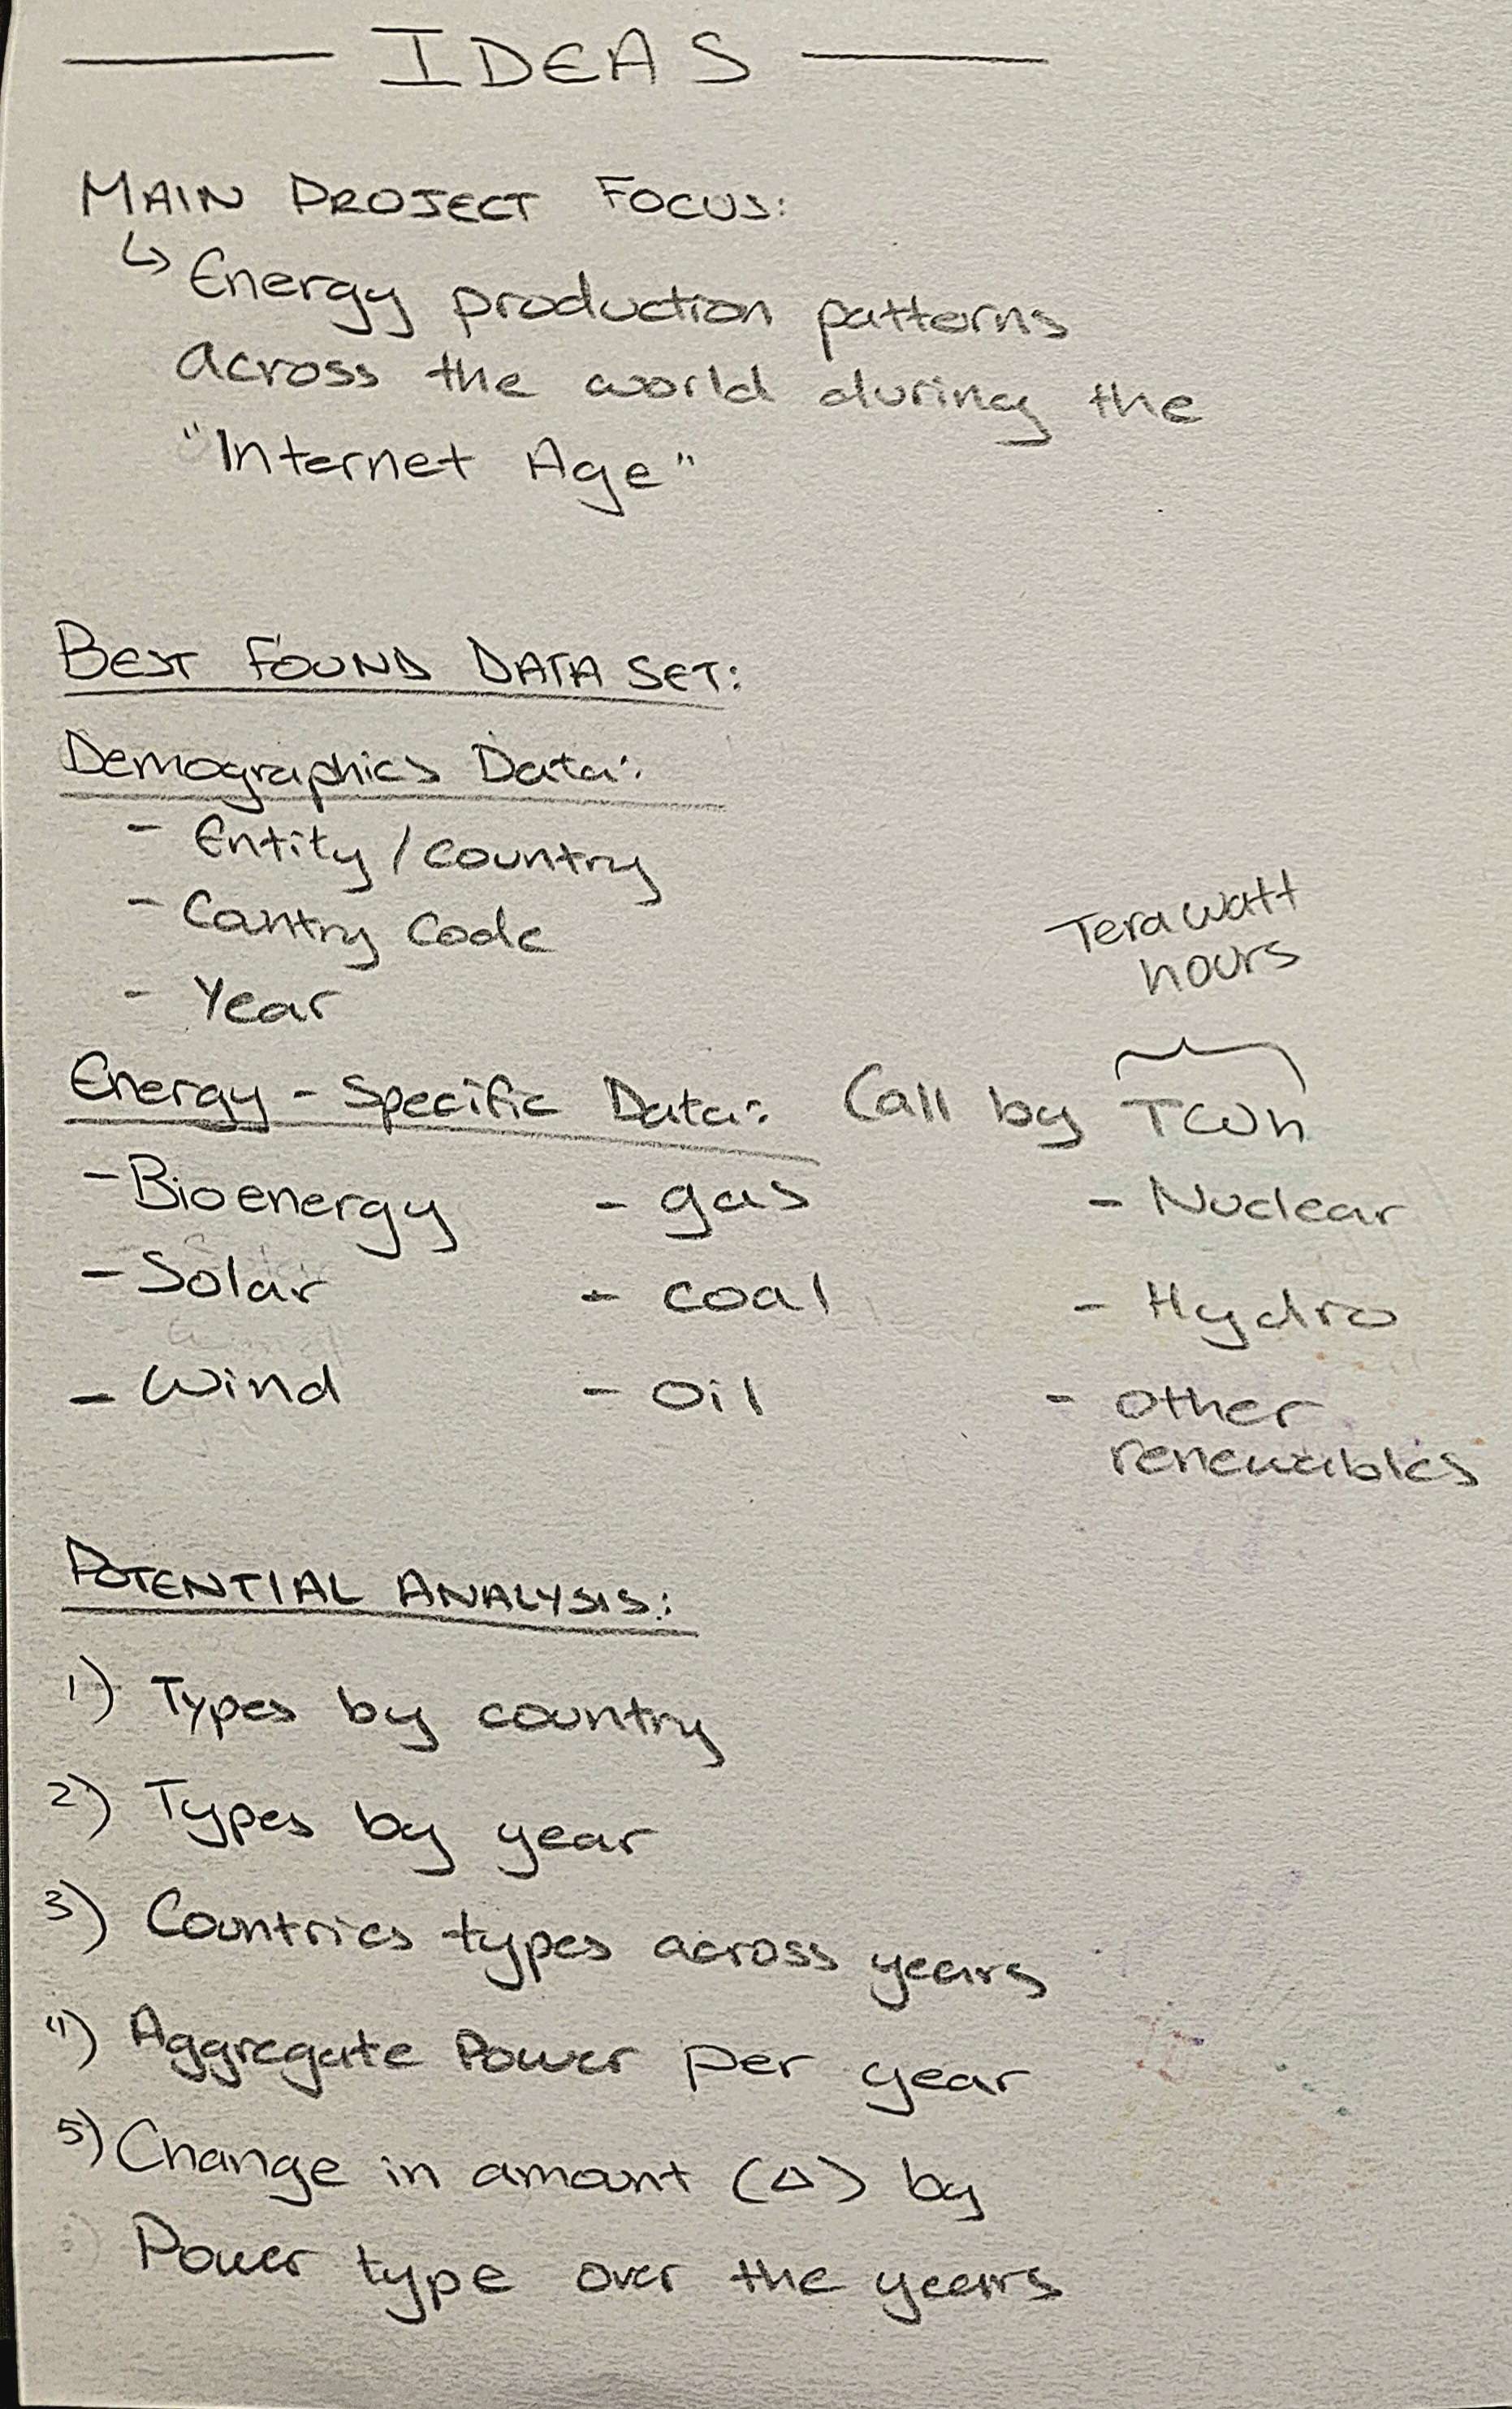 IDEAS
MAIN PROJECT FOCUS:
↳ Energy production patterns
across the world during the
"Internet Age"
BEST FOUND DATA SET:
Demographics Data:
- Entity / country
- Country Code
- Year
Terawatt
hours
Energy - Specific Data: (all by TWh
- Bioenergy - gas - Nuclear
- Solar - coal - Hydro
- Wind - Oil - other
renewables
POTENTIAL ANALYSIS:
1) Types by country
2) Types by year
3) Countries types across years
4) Aggregate Power per year
5) Change in amount (Δ) by
Power type over the years